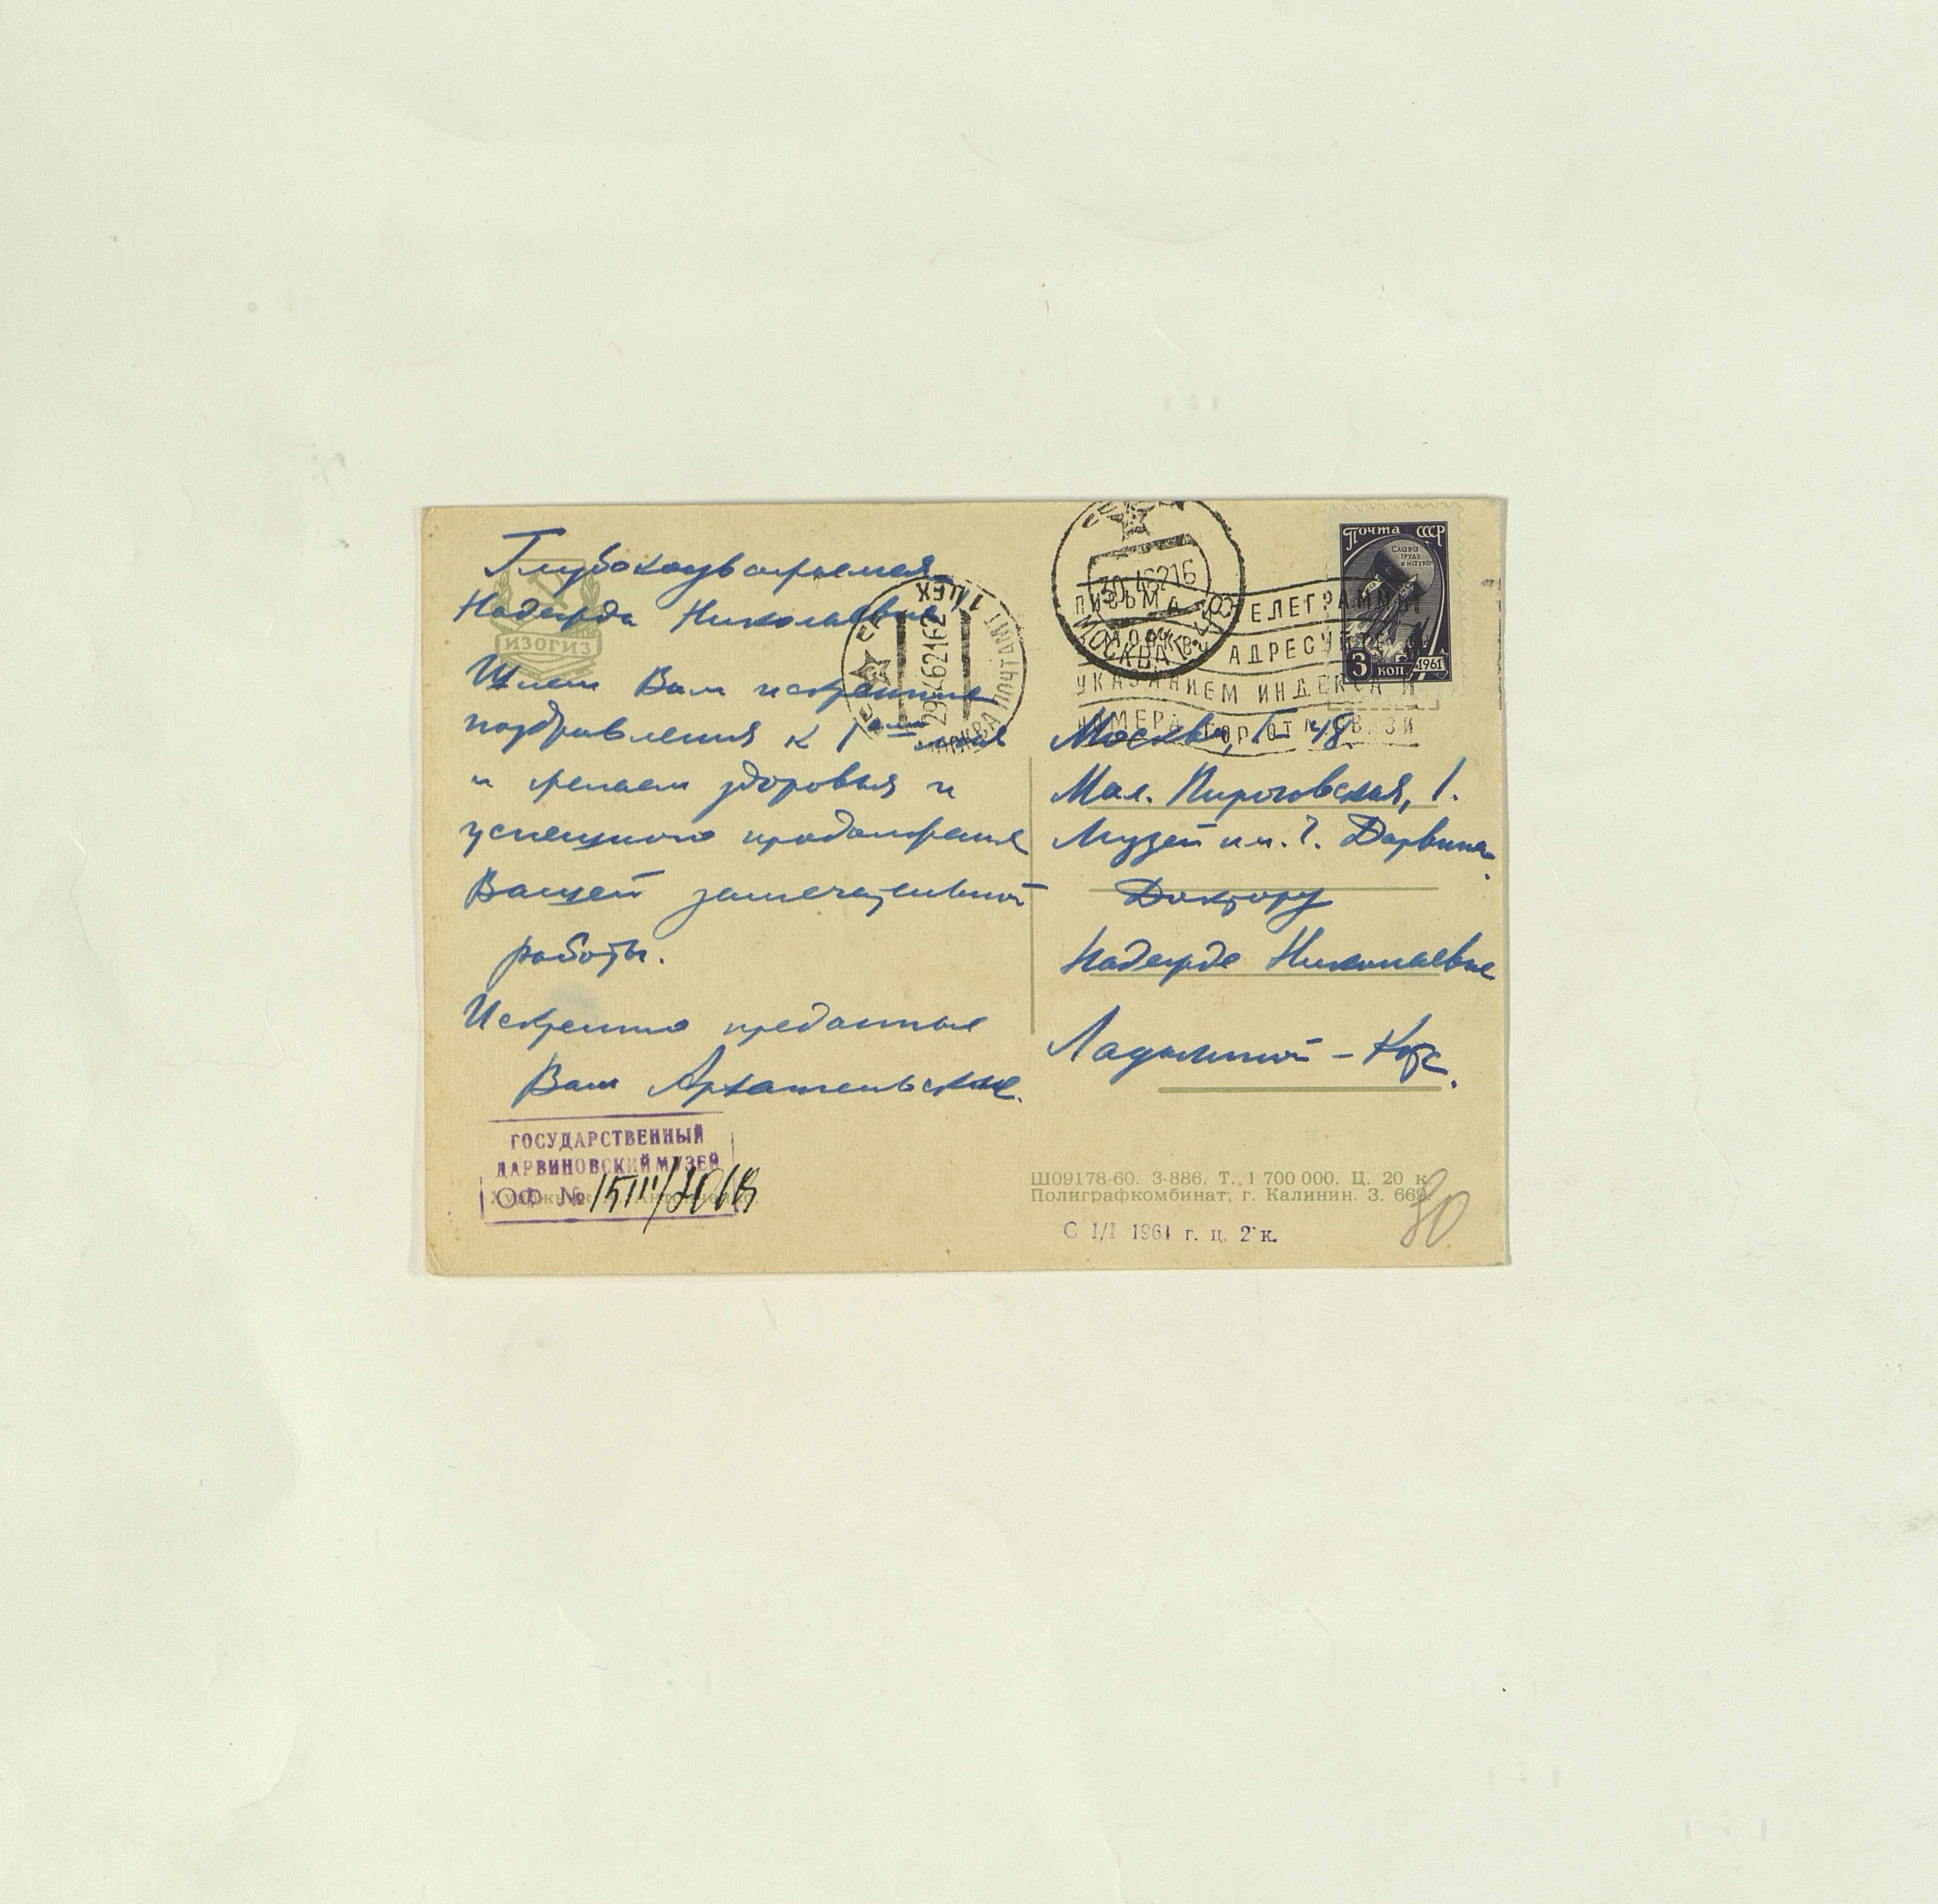 Глубокоуважаемая
Надежда Николаевна
Шлем Вам искренние
поздравления к 1ому мая
и желаем здоровья и
успешного продолжения
Вашей замечательной
работы.
Искренно преданные
Вам Архангельские.
ИЗОГИЗ
1 ЦЕХ
29462162
ПОЧТАМТ
ГОСУДАРСТВЕННЫЙ
ДАРВИНОВСКИЙ МУЗЕЙ
ОФ №
Почта СССР
Слава
труду
и науке
3 коп 1961
МОСКВА
ПИСЬМА ТЕЛЕГРАММЫ
АДРЕСУЙТЕ
УКАЗАНИЕМ ИНДЕКСА И
НОМЕРА ГОР.ОТД. СВЯЗИ
Москва, Г-48
Мал. Пироговская, 1.
Музей им. Ч. Дарвина.
Доктору
Надежде Николаевне
Ладыгиной - Котс.
Ш09178-60. З-886. Т. 1 700 000. Ц. 20 к.
Полиграфкомбинат, г. Калинин. З. 669.
С 1/I 1961 г. ц. 2 к.